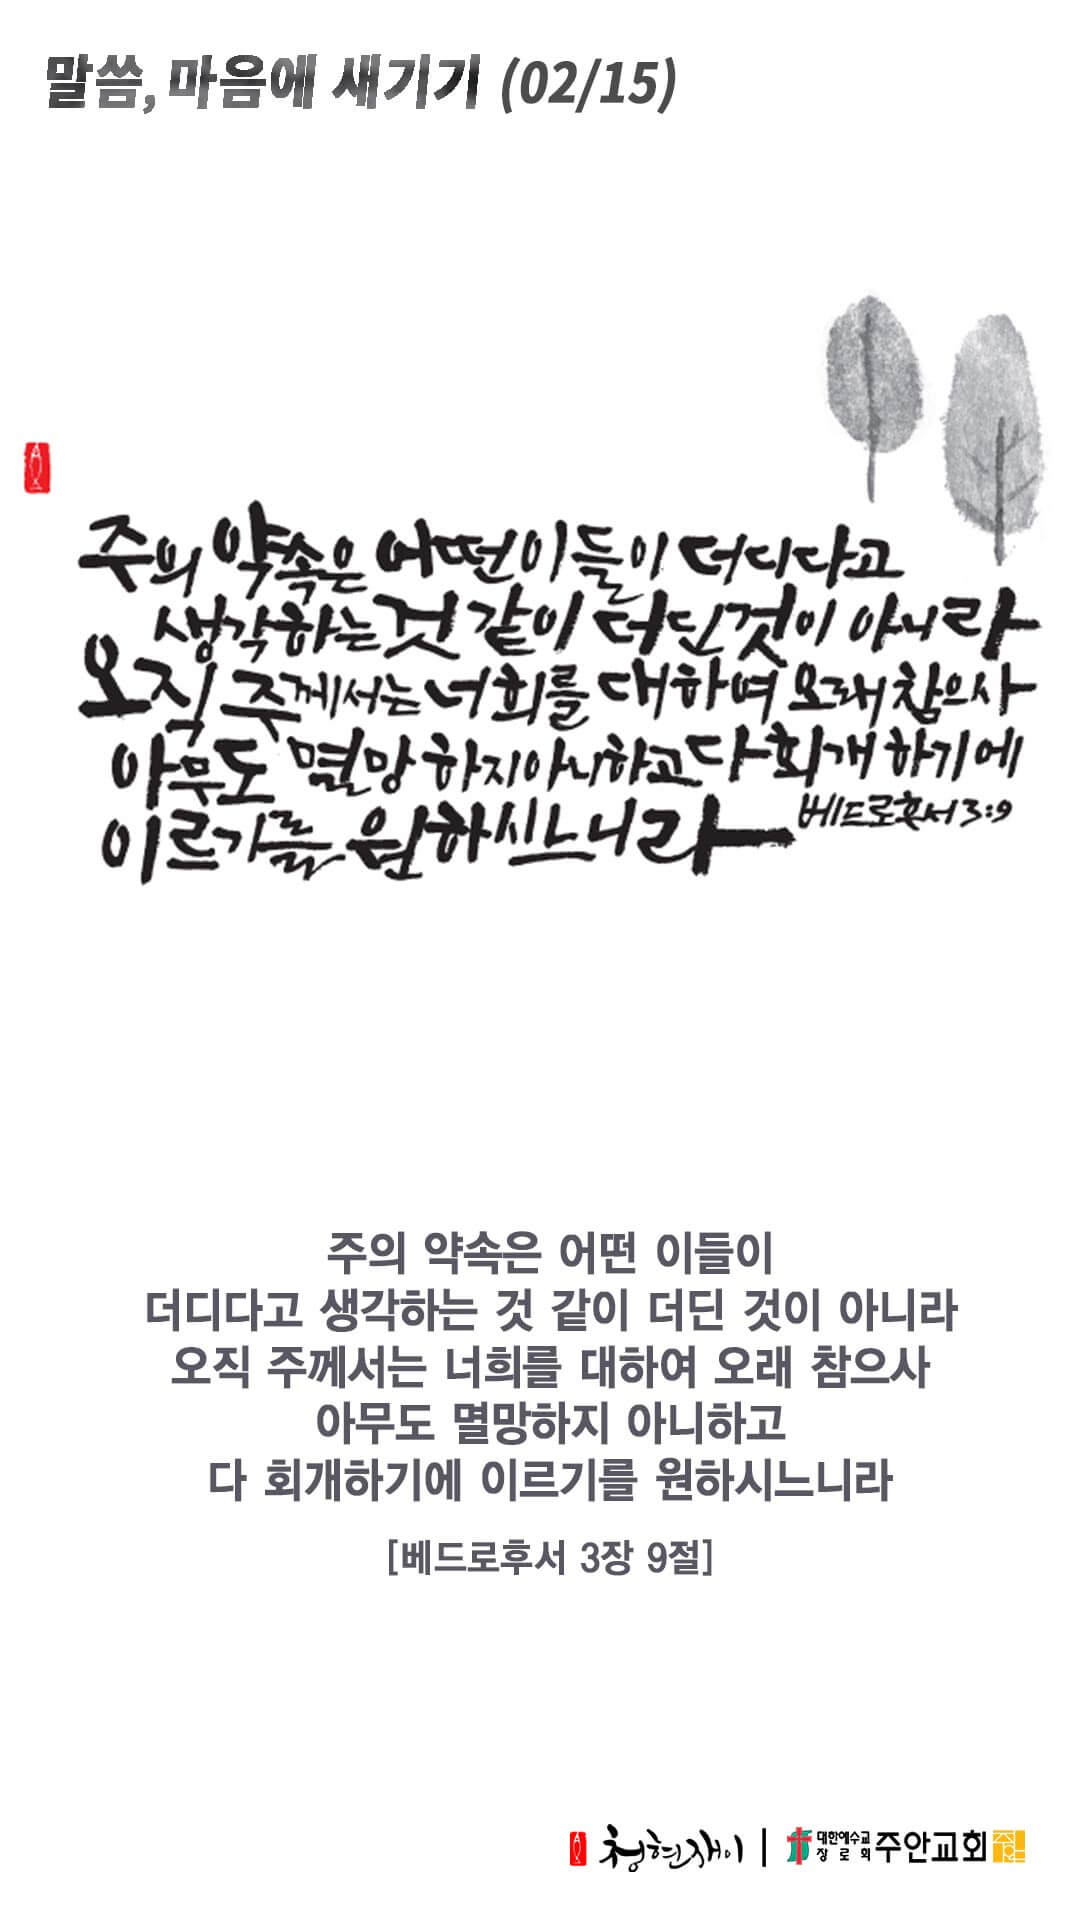 말씀, 마음에 새기기 (02/15)
주의 약속은 어떤 이들이 더디다고
생각하는 것 같이 더딘 것이 아니라
오직 주께서는 너희를 대하여 오래 참으사
아무도 멸망하지 아니하고 다 회개하기에
이르기를 원하시느니라 베드로후서 3:9
주의 약속은 어떤 이들이
더디다고 생각하는 것 같이 더딘 것이 아니라
오직 주께서는 너희를 대하여 오래 참으사
아무도 멸망하지 아니하고
다 회개하기에 이르기를 원하시느니라
[베드로후서 3장 9절]
청현재이 | 대한예수교 장로회 주안교회